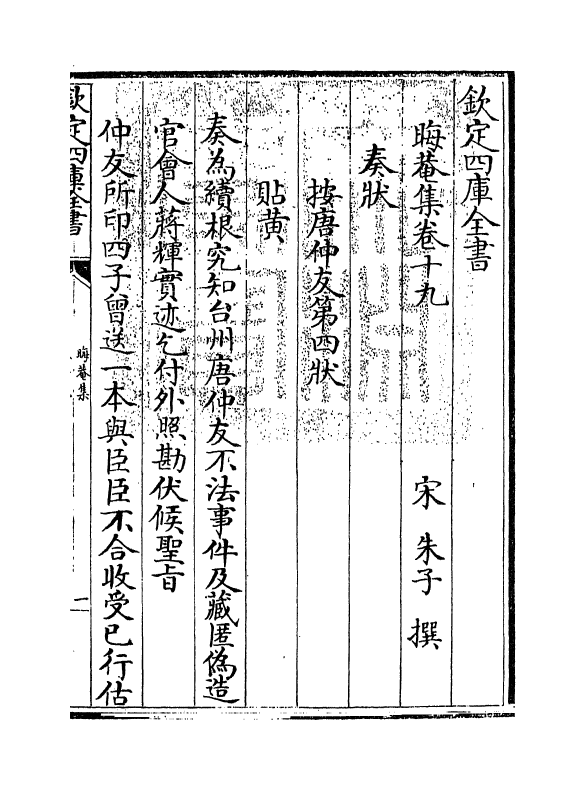 欽定四庫全書
晦菴集卷十九　宋　朱子　撰
奏狀
按唐仲友第四狀
貼黄
奏為續根究知台州唐仲友不法事件及藏匿偽造
官㑹人蔣輝實迹乞付外照勘伏候聖旨
仲友所印四子曾送一本與臣臣不合收受已行估
欽定四庫全書
晦菴集